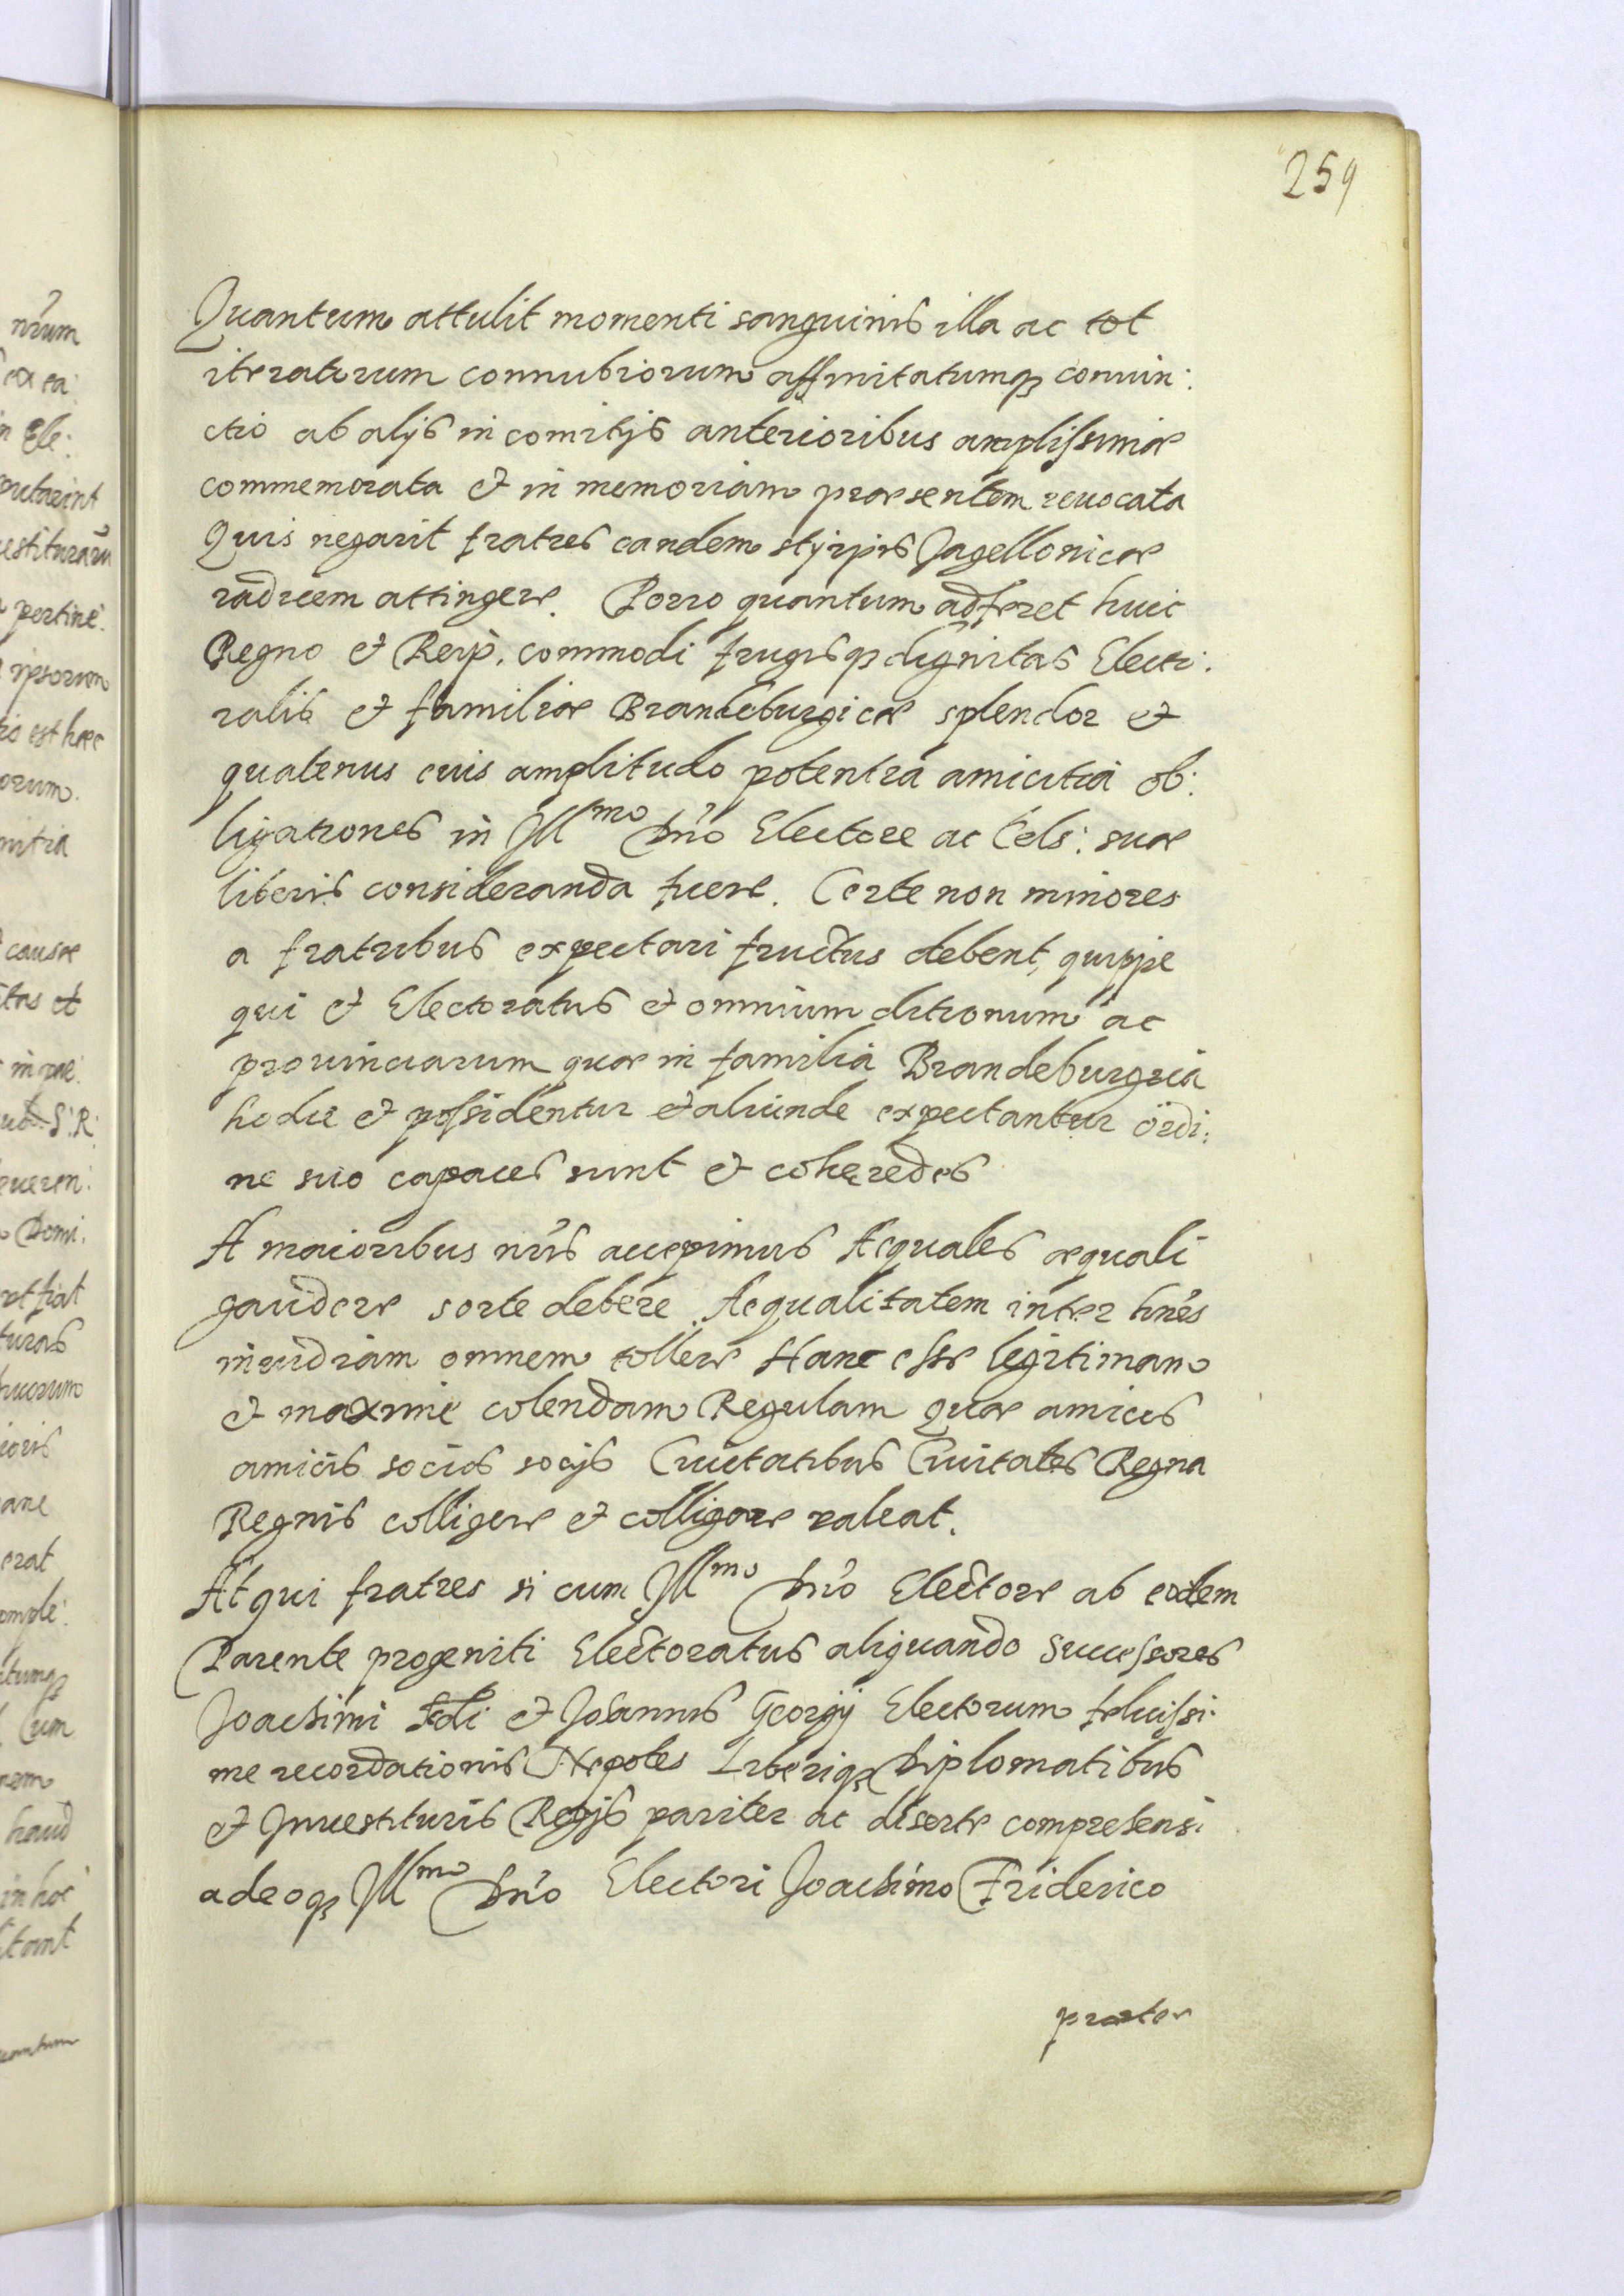 259
Quantum attulit momenti sanguinis illa ac tot
iteratarum connubiorum affinitatumq; coniun:
ctio ab alijs in comitijs anterioribus amplissime
commemorata et in memoriam praesentem reuocata
Quis negarit fratres eandem styrpis Jagellonicae
radicem attingere. Porro quantum adferet huic
Regno et Reip. commodi frugisq; dignitas Electo:
ralis et familiae Brandeburgicae splendor et
quatenus euis amplitudo potentia amicitia ob:
ligationes in Illmo Dno Electore ac Cels: suae
liberis consideranda fuere. Certe non minores
a fratribus expectari fructus debent, quippe
qui et Electoratus et omnium ditionum ac
prouinciarum quae in familia Brandeburgica
hodie et possidentur et aliunde expectantur ordi:
ne suo capaces sunt et coheredes
A maioribus nris accepimus Aequales aequali
gaudere sorte debere. Aequalitatem inter hnes
inuidiam omnem tollere Hanc esse legitimam
et maxime colendam Regulam quae amicos
amicis socios socijs Ciuitatibus Ciuitates Regna
Regnis colligere et colligare valeat.
At qui fratres si cum Illmo Dno Electore ab eodem
Parente progeniti Electoratus aliquando Successores
Joachimi Fdi et Johannis Georgij Electorum felicissi:
me recordationis Nepotes Liberiq; Diplomatibus
et Inuestituris Regijs pariter ac diserte comprehensi
adeoq; Illmo Dno Electori Joachimo Friderico
praeter